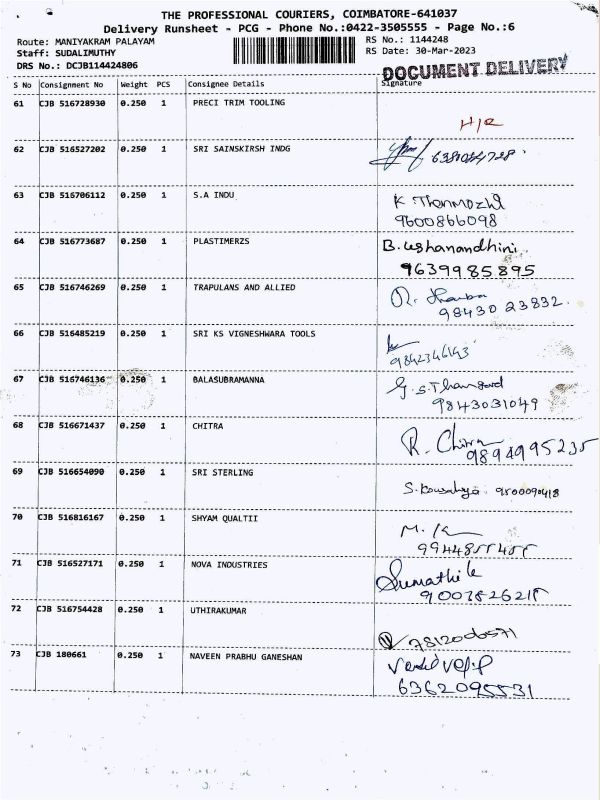 THE PROFESSIONAL COURIERS, COIMBATORE-641037
Delivery Runsheet - PCG - Phone No.:0422-3505555 - Page No.:6
Route: MANIYAKRAM PALAYAM
RS No.: 1144248
Staff: SUDALIMUTHY
RS Date: 30-Mar-2023
DRS No.: DCJB114424806
DOCUMENT DELIVERY
S No Consignment No Weight PCS Consignee Details Signature
61 CJB 516728930 0.250 1 PRECI TRIM TOOLING
H/R
62 CJB 516527202 0.250 1 SRI SAINSKIRSH INDG
63 CJB 516706112 0.250 1 S.A INDU
K Thenmozhi
9600866098
64 CJB 516773687 0.250 1 PLASTIMERZS
B. Ushanandhini
9639985895
65 CJB 516746269 0.250 1 TRAPULANS AND ALLIED
98430 23832.
66 CJB 516485219 0.250 1 SRI KS VIGNESHWARA TOOLS
9842346143
67 CJB 516746136 0.250 1 BALASUBRAMANNA
9843031049
68 CJB 516671437 0.250 1 CHITRA
R. Chitra
9894995235
69 CJB 516654090 0.250 1 SRI STERLING
S. Kowsalya 9500090418
70 CJB 516816167 0.250 1 SHYAM QUALTII
M. K
9944855455
71 CJB 516527171 0.250 1 NOVA INDUSTRIES
Sumathi k
9003526215
72 CJB 516754428 0.250 1 UTHIRAKUMAR
7812006571
73 CJB 180661 0.250 1 NAVEEN PRABHU GANESHAN
6362095531